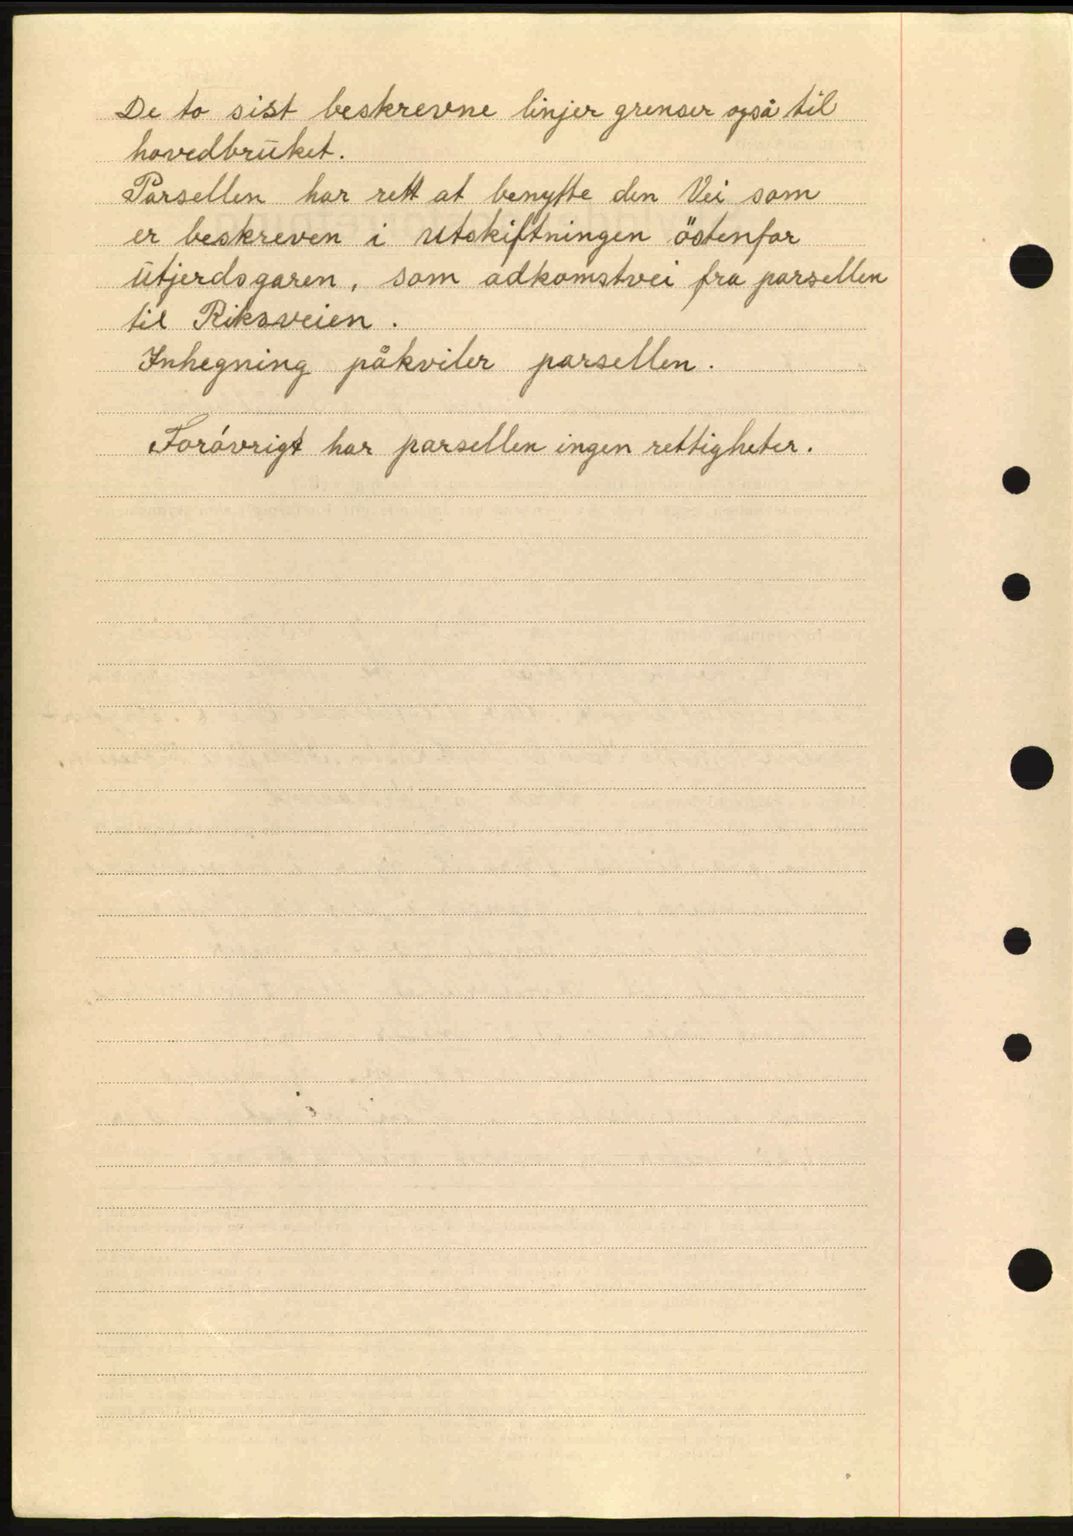 De to sist beskrevne linjer grenser også til
hovedbruket.
Parsellen har rett at benytte den Vei som
er beskreven i utskiftningen östenfor
utjerdsgaren, som adkomstvei fra parsellen
til Riksveien.
Inhegning påkviler parsellen.
Forövrigt har parsellen ingen rettigheter.